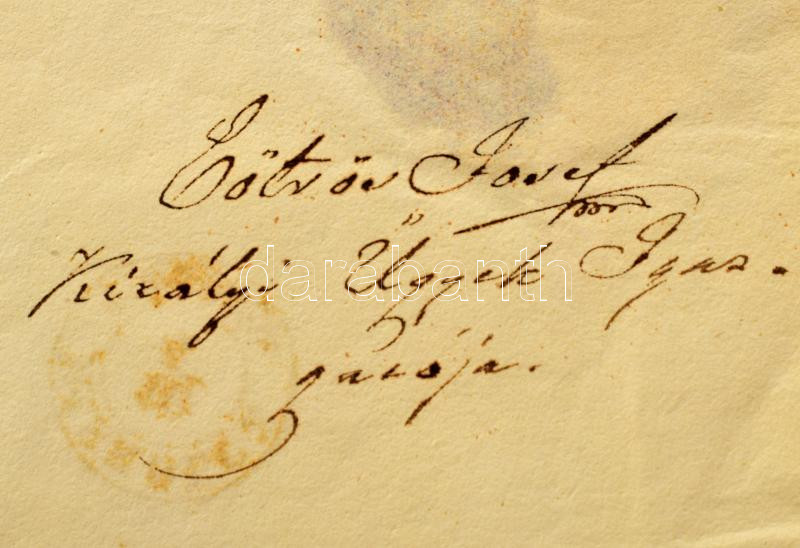 Eötvös Josef
Királyi Ügyek Igaz-
gatója.
darabanth